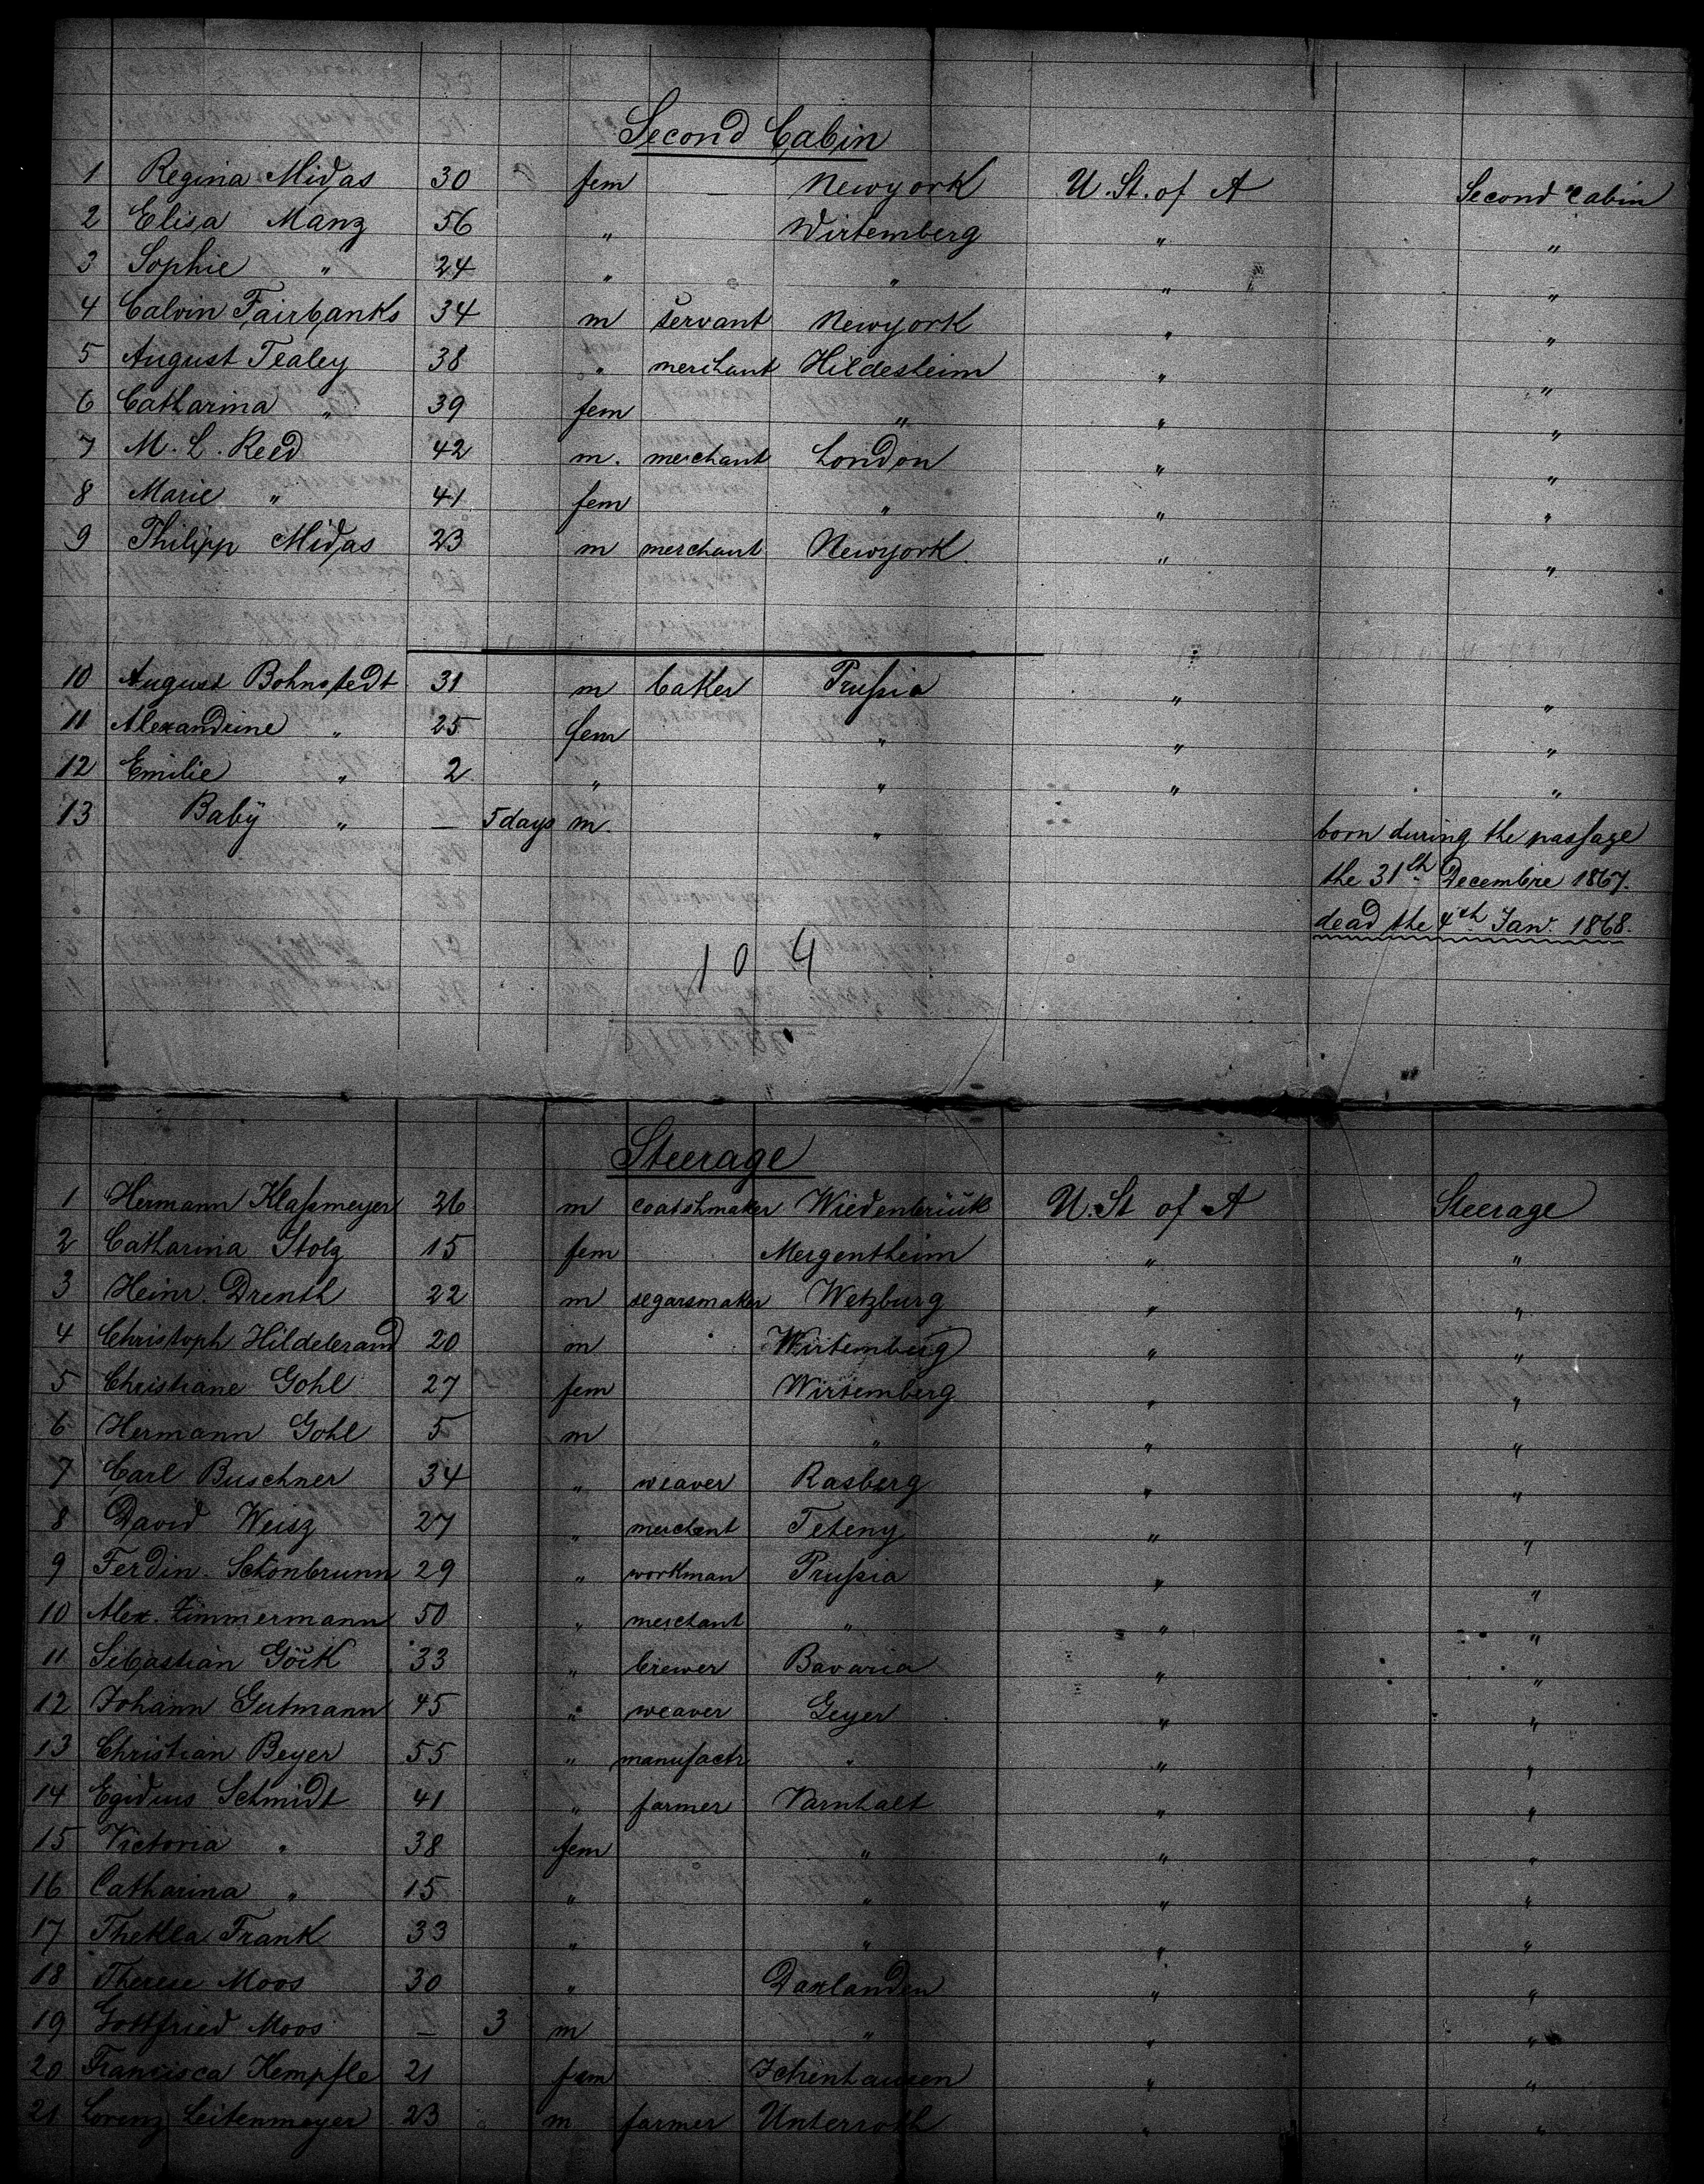 Second Cabin
1 Regina Midas 30 fem — Newyork U. St. of A Second Cabin
2 Elisa Manz 56 " Wirtemberg " "
3 Sophie " 24 " " " "
4 Calvin Fairbanks 34 m servant Newyork " "
5 August Tealey 38 " merchant Hildesheim " "
6 Catharina " 39 fem " " "
7 M. L. Reed 42 m. merchant London " "
8 Marie " 41 fem " " "
9 Philipp Midas 23 m merchant Newyork. " "
10 August Bohnstedt 31 m baker Prußia " "
11 Alexandrine " 25 fem " " "
12 Emilie " 2 " " " "
13 Baby " — 5 days m. " born during the paßage
the 31th Decembre 1867.
dead the 4th Jan. 1868.
104
Steerage
1 Hermann Klaßmeyer 26 m coatshmaker Wiedenbrück U. St of A Steerage
2 Catharina Stolz 15 fem Mergentheim " "
3 Heinr. Drenth 22 m segarsmaker Wetzburg " "
4 Christoph Hildebrand 20 m Wirtemberg " "
5 Christiane Gohl 27 fem Wirtemberg " "
6 Hermann Gohl 5 m " " "
7 Carl Buschner 34 " weaver Rasberg " "
8 David Weisz 27 " merchant Teteny " "
9 Ferdin. Schönbrunn 29 " workman Prußia " "
10 Alex. Zimmermann 50 " merchant " " "
11 Sebastian Göck 33 " brewer Bavaria " "
12 Johann Gutmann 45 " weaver Geyer " "
13 Christian Beyer 55 " manufactr " " "
14 Egidius Schmidt 41 " farmer Varnhalt " "
15 Victoria " 38 fem " " "
16 Catharina " 15 " " " "
17 Thekla Frank 33 " " " "
18 Therese Moos 30 " Daxlanden " "
19 Gottfried Moos — 3 m " " "
20 Francisca Kempfle 21 fem Ichenhausen " "
21 Lorenz Leitenmeyer 23 m farmer Unterroth " "